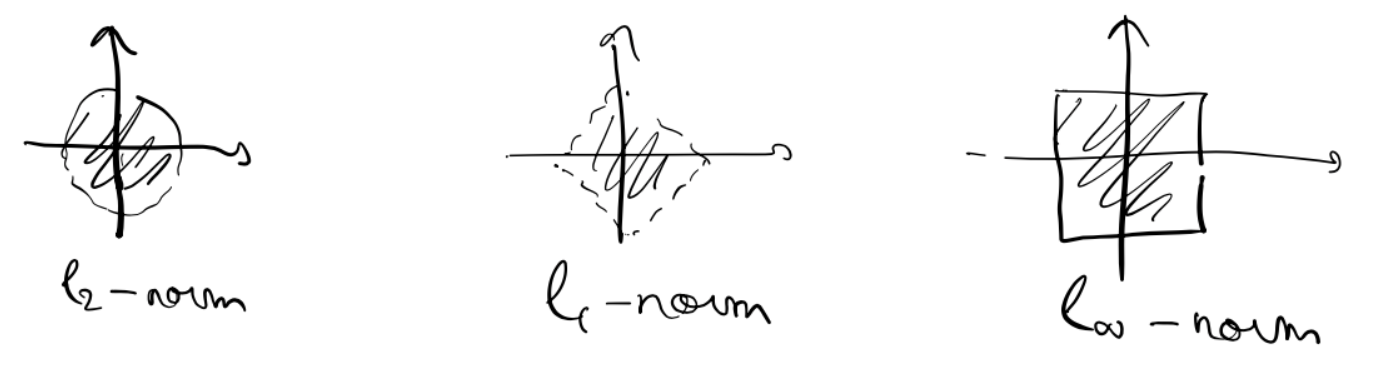 l₂-norm
l₁-norm
l∞-norm